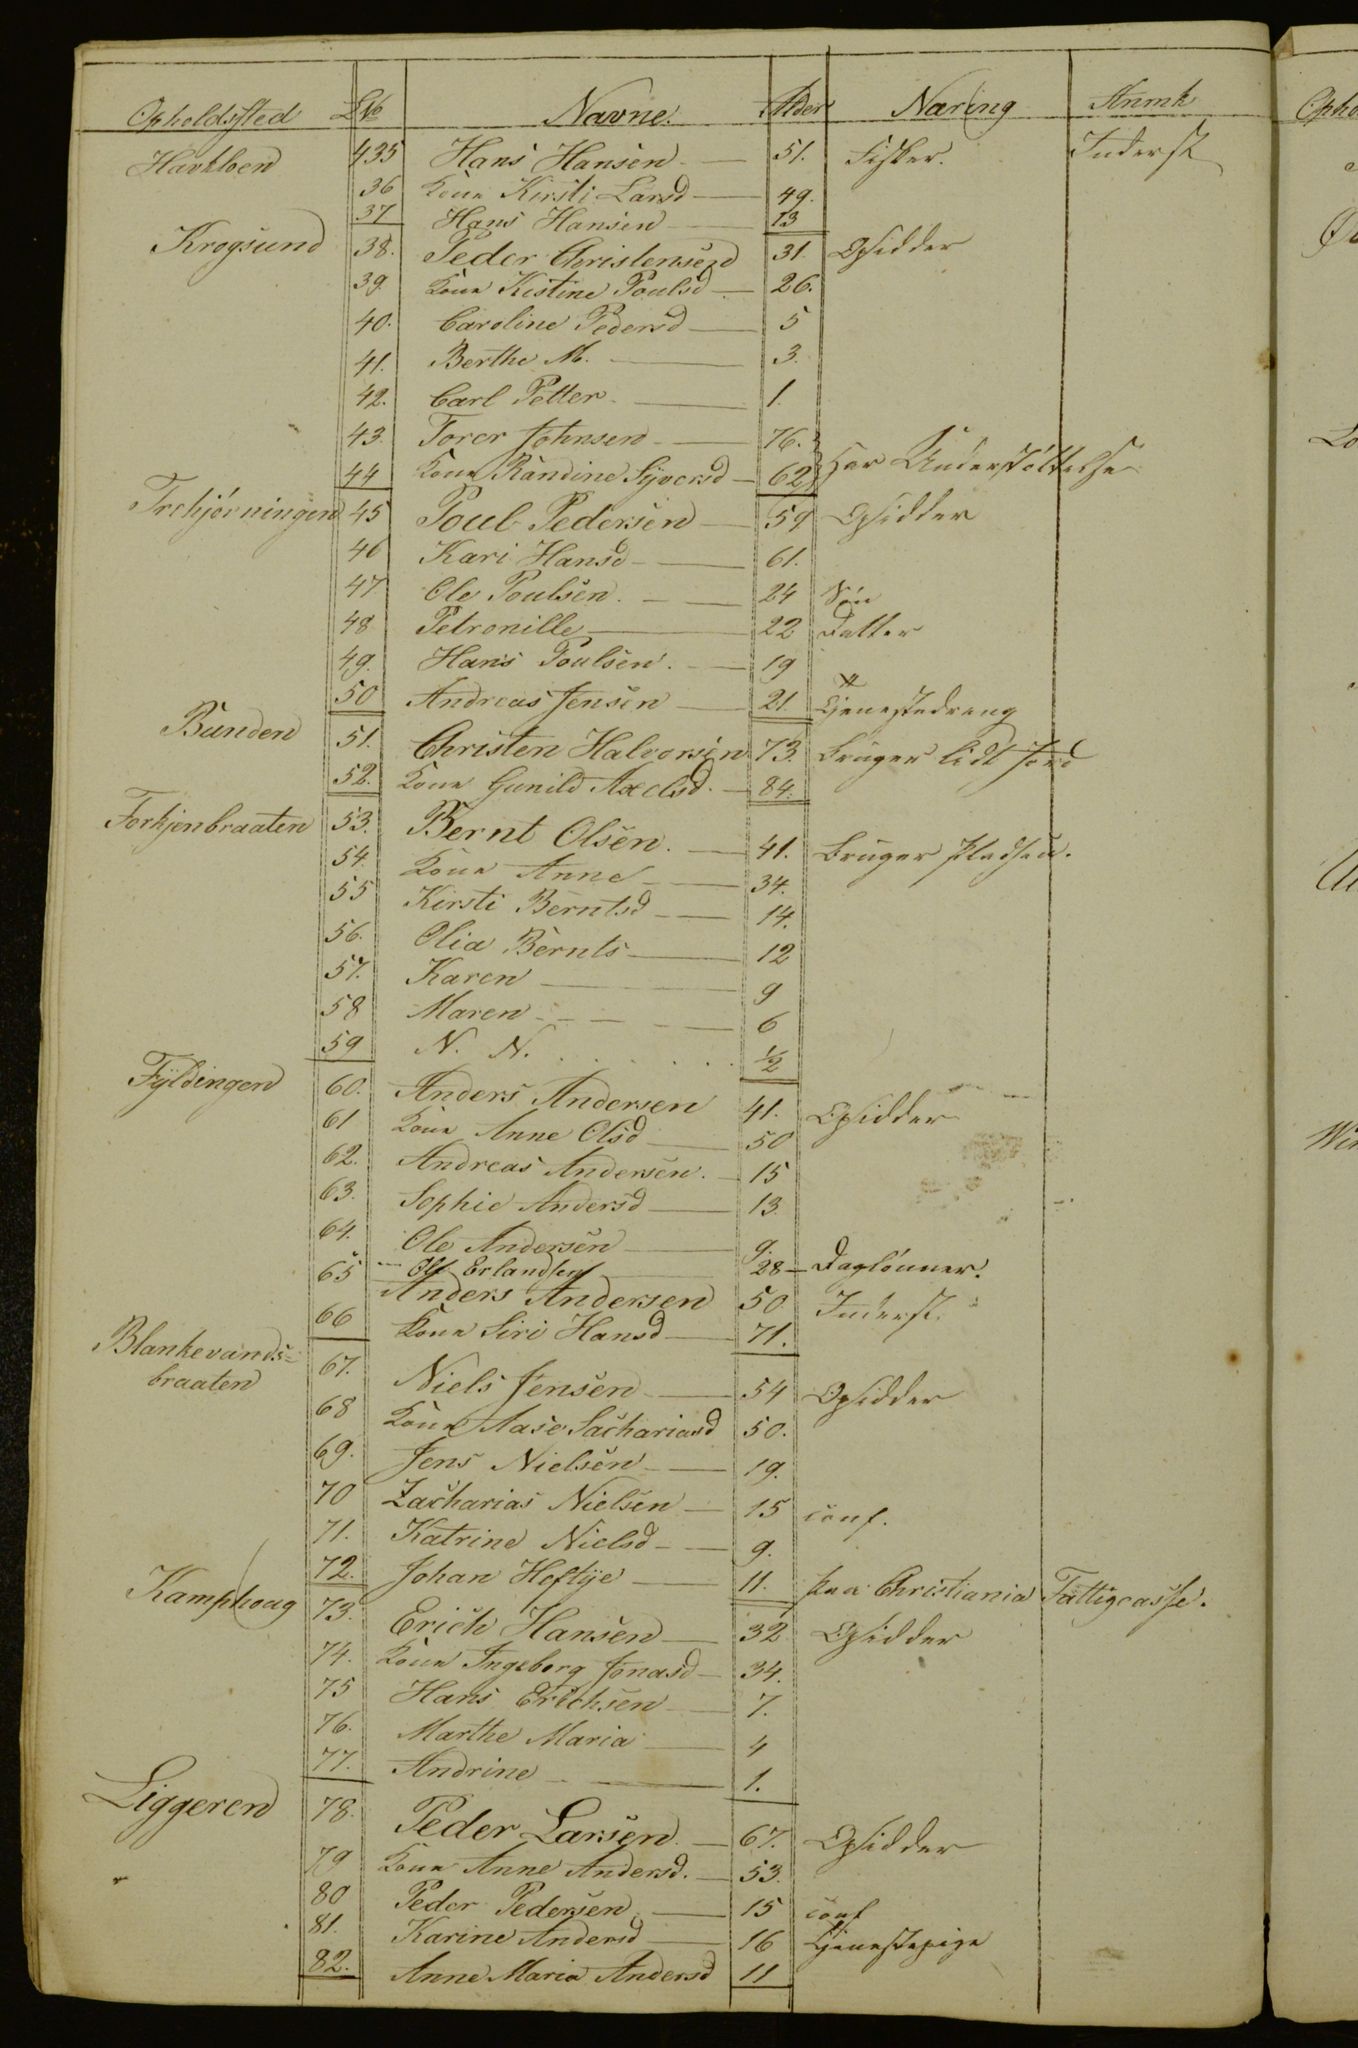 Opholdssted LNo Navne. Alder Næring Anmk
Havkloen 435 Hans Hansen 51. Fisker. Inderst
36 Kone Kirsti Larsd 49.
37 Hans Hansen 13
Krogsund 38. Peder Christensen 31. Opsidder
39. Kone Kistine Poulsd 26.
40. Caroline Pedersd 5
41. Berthe M. 3.
42. Carl Petter 1.
43. Torer Johnsen 76.
44 Kone Randine Syversd 62 Har Understøttelse
Trehjørningen 45 Poul Pedersen 59 Opsidder
46 Kari Hansd 61.
47 Ole Poulsen. 24 Søn
48 Petronille 22 Datter
49. Hans Poulsen. 19
50 Andreas Jensen 21. Tjenestedreng
Bunden 51. Christen Halvorsen 73. Bruger lidt Jord
52. Kone Gunild Axelsd. 84.
Forkjenbraaten 53. Bernt Olsen. 41. Bruger Pladsen.
54. Kone Anne 34.
55 Kirsti Berntsd 14.
56. Olia Bernts 12
57. Karen 9
58 Maren 6
59 N. N. 1/2
Fyldingen 60. Anders Andersen 41. Opsidder
61 Kone Anne Olsd 50
62. Andreas Andersen. 15
63. Sophie Andersd 13.
64. Ole Andersen 9.
Ole Erlandsen 28 Daglønner.
65 Anders Andersen 50 Inderst.
66 Kone Siri Hansd 71.
Blankevands=
braaten 67. Niels Jensen 54 Opsidder
68 Kone Aase Sachariasd 50.
69. Jens Nielsen 19.
70 Zacharias Nielsen 15 conf.
71. Katrine Nielsd 9.
72. Johan Heftye 11. paa Christiania Fattigcasse.
Kamphoug 73. Erich Hansen 32 Opsidder
74. Kone Ingeborg Jonasd 34.
75 Hans Erichsen 7.
76. Marthe Maria 4
77. Andrine 1.
Liggeren 78. Peder Larsen. 67. Opsidder
79 Kone Anne Andersd. 53.
80 Peder Pedersen 15 conf
81. Karine Andersd 16 Tjenestepige
82. Anne Maria Andersd 11